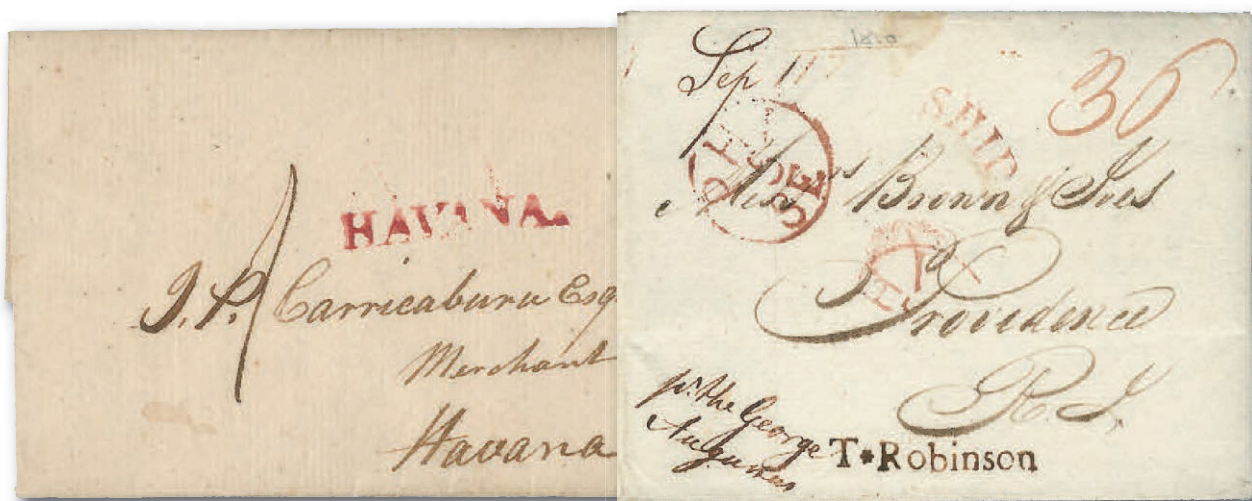 HAVANA.
J. P. Carricaburu Esq
Merchant
Havana
1800
Sep 11
36
SHIP
Mess.rs Brown & Ives
Providence
R. I.
pr. the George
Augustus
T*Robinson